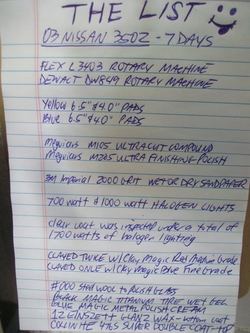 THE LIST
03 NISSAN 350Z - 7 DAYS
FLEX L3403 ROTARY MACHINE
DEWALT DW849 ROTARY MACHINE
Yellow 6.5" & 4.0" PADS
Blue 6.5" & 4.0" PADS
Meguiars M105 ULTRA CUT COMPOUND
Meguiars M205 ULTRA FINISHING POLISH
3M Imperial 2000 GRIT WET OR DRY SANDPAPER
700 watt & 1000 watt HALOGEN LIGHTS
clear coat was inspected under a total of
1700 watts of halogen lighting
CLAYED TWICE w/ Clay Magic Red Medium Grade
CLAYED ONCE w/ Clay Magic Blue Fine Grade
#000 Steel wool to
BLACK MAGIC TITANIUM TIRE WET GEL
BLUE MAGIC METAL POLISH CREAM
1Z EINSZETT GLANZ WAX -
COLLINITE 476S SUPER DOUBLE COAT